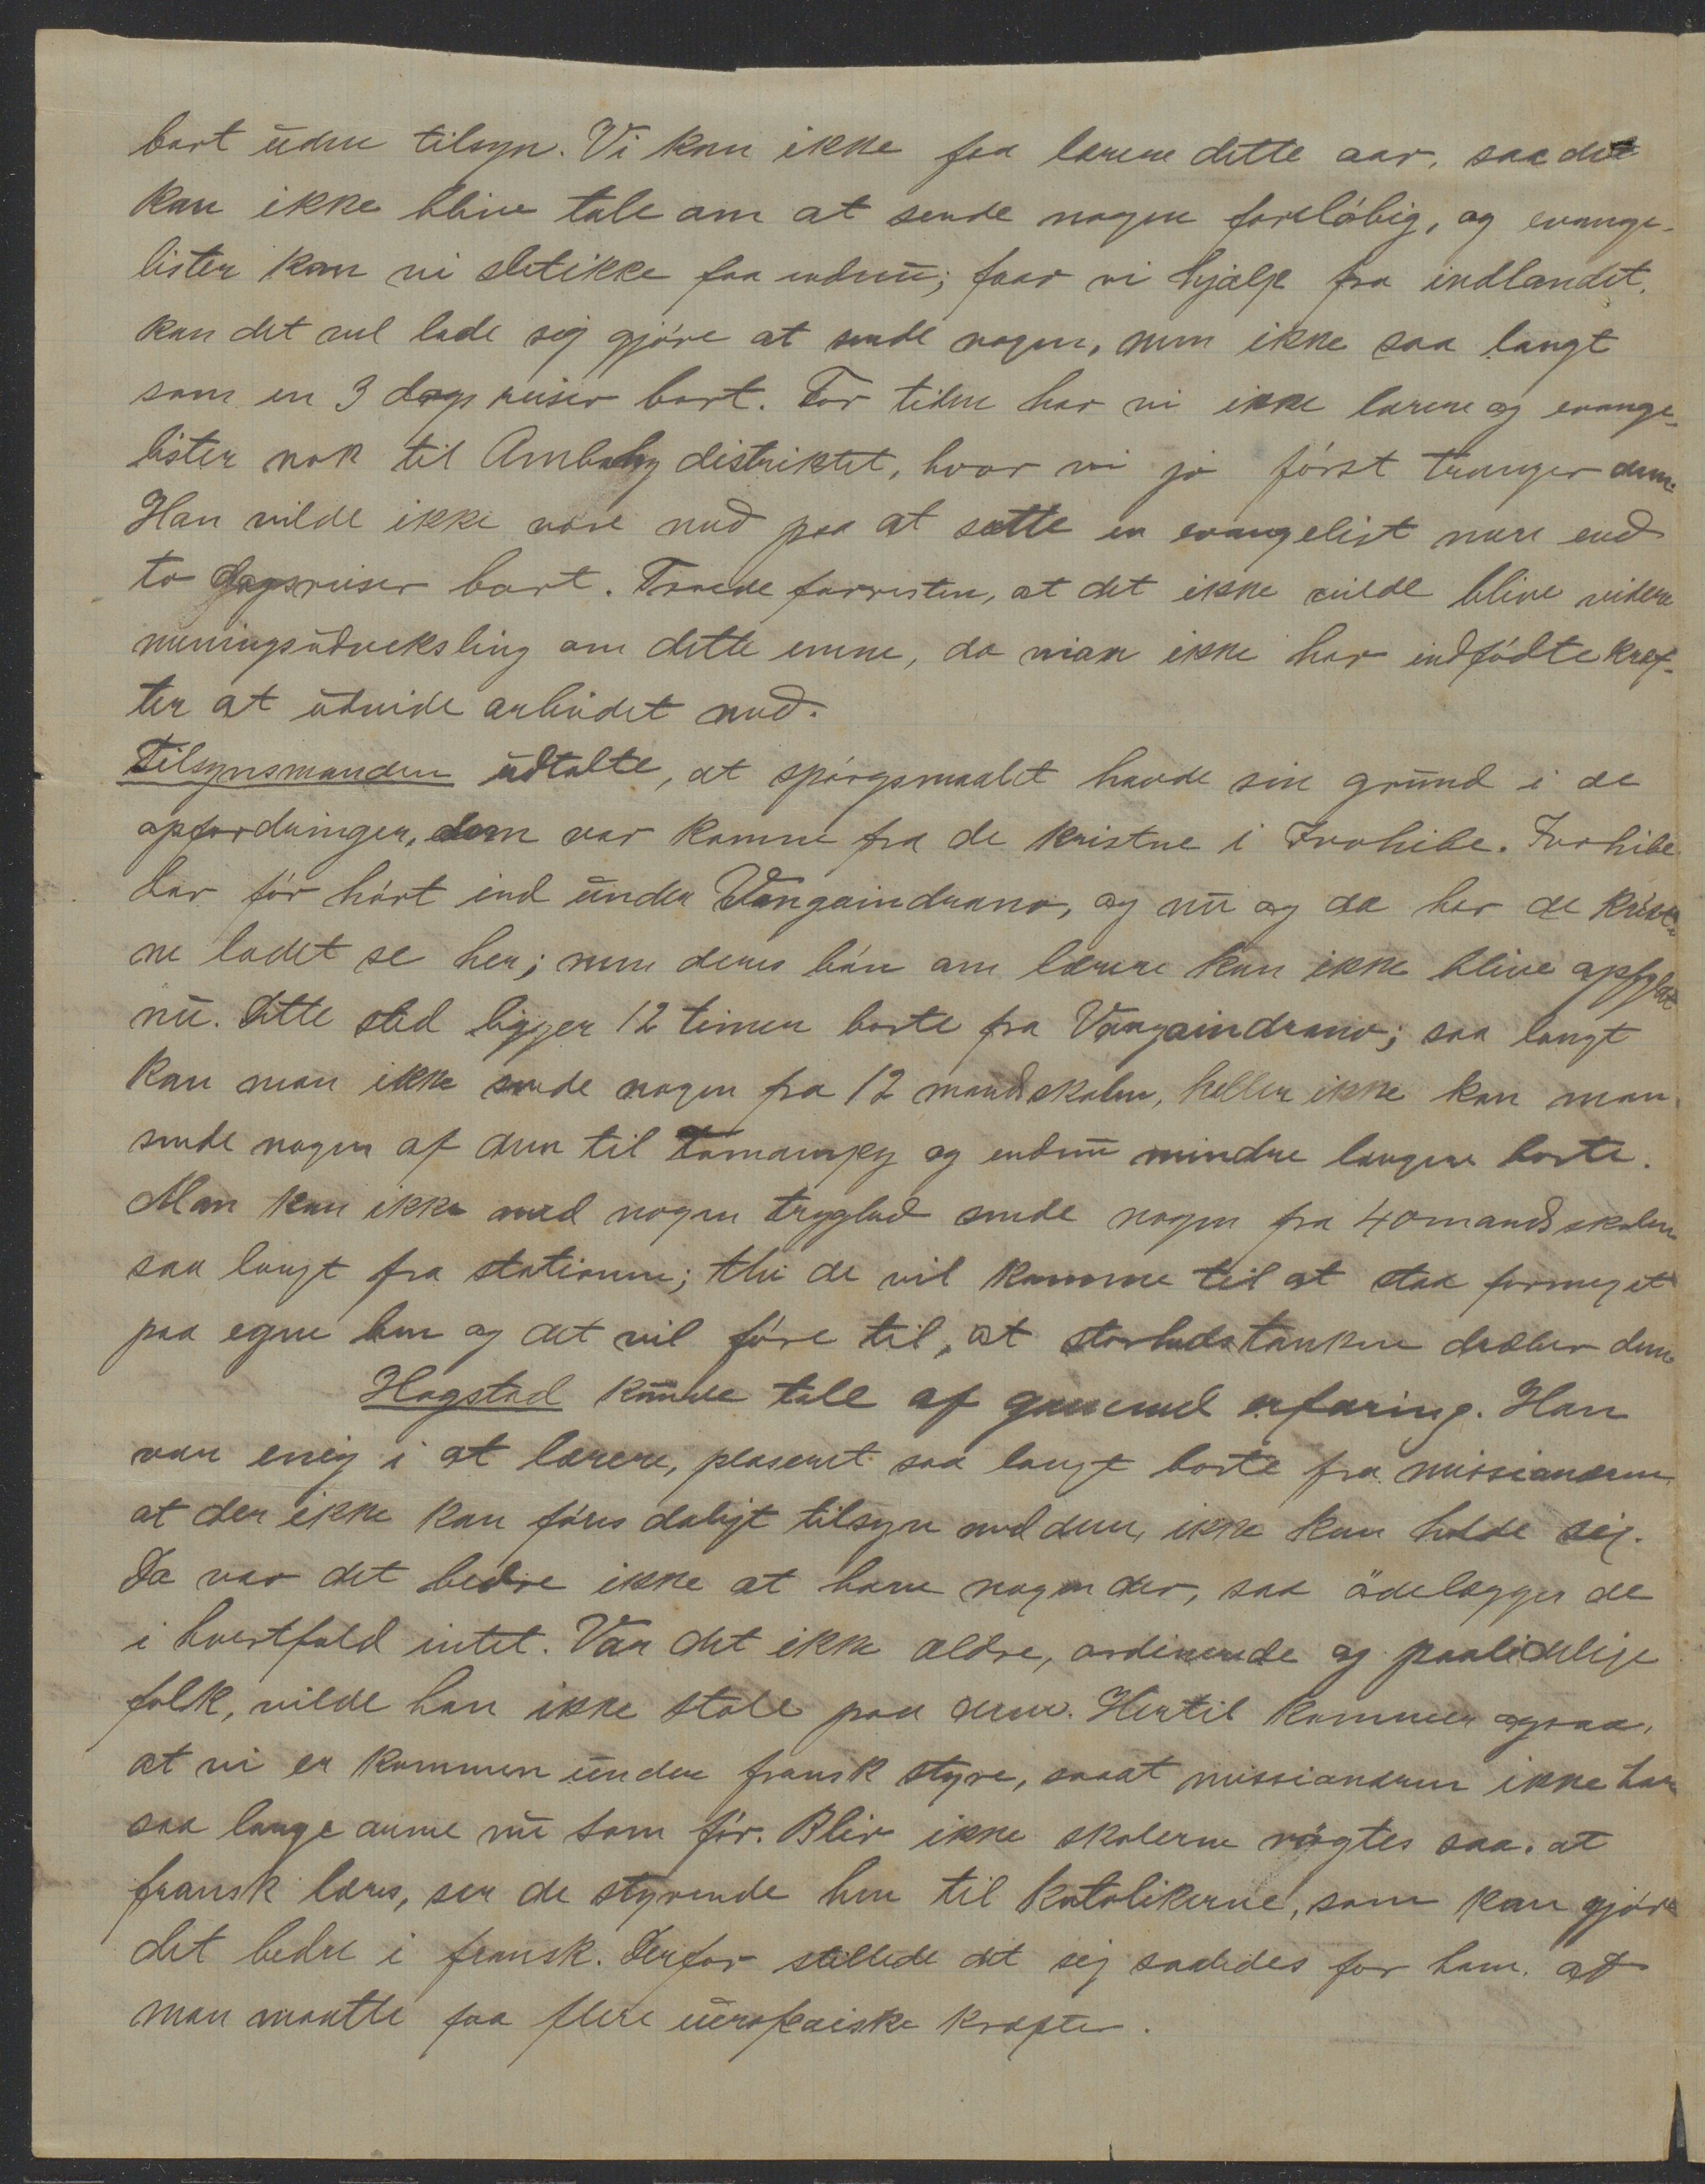 bort uden tilsyn. Vi kan ikke faa lærere dette aar, saa det
kan ikke blive tale om at sende nogen foreløbig, og evange-
lister kan vi sletikke faa endnu; faar vi hjælp fra indlandet,
kan det vel lade sig gjøre at sende nogen, men ikke saa langt
som en 3 dags reiser bort. For tiden har vi ikke lærere og evange-
lister nok til Ambahy distriktet, hvor vi jo først trænger dem.
Han vilde ikke være med paa at sætte en evangelist mere end
to dagsreiser bort. Troede forresten, at det ikke vilde blive videre
meningsudveksling om dette emne, da man ikke har indfødte kræf-
ter at udvide arbeidet med.
Tilsynsmanden udtalte, at spørgsmaalet havde sin grund i de
opfordringer, som var komne fra de kristne i Ivohibe. Ivohibe
har før hørt ind under Vangaindrano, og nu og da har de krist-
ne ladet se her; men deres bøn om lærere kan ikke blive opfyldt
nu. Dette sted ligger 12 timer borte fra Vangaindrano; saa langt
kan man ikke sende nogen fra 12 mandsskolen, heller ikke kan man
sende nogen af dem til Tamampy og endnu mindre længere borte.
Man kan ikke med nogen tryghed sende nogen fra 40 mandsskolen
saa langt fra stationen; thi de vil komme til at staa formeget
paa egne ben og det vil føre til, at storhedstanken dræber dem.
Hogstad kunde tale af gammel erfaring. Han
var enig i at lærere, plaseret saa langt borte fra missionæren,
at der ikke kan føres daligt tilsyn med dem, ikke kan holde sig.
Da var det bedre ikke at have nogen der, saa ødelægger de
i hvertfald intet. Var det ikke ældre, ordinerede og paalidelige
folk, vilde han ikke stole paa dem. Hertil kommer ogsaa,
at vi er kommen under fransk styre, saaat missionæren ikke har
saa lange arme nu som før. Blir ikke skolerne røgtes saa, at
fransk læres, ser de styrende hen til katolikerne, som kan gjøre
det bedre i fransk. Derfor stillede det sig saaledes for ham, at
man maatte faa flere europæiske kræfter.